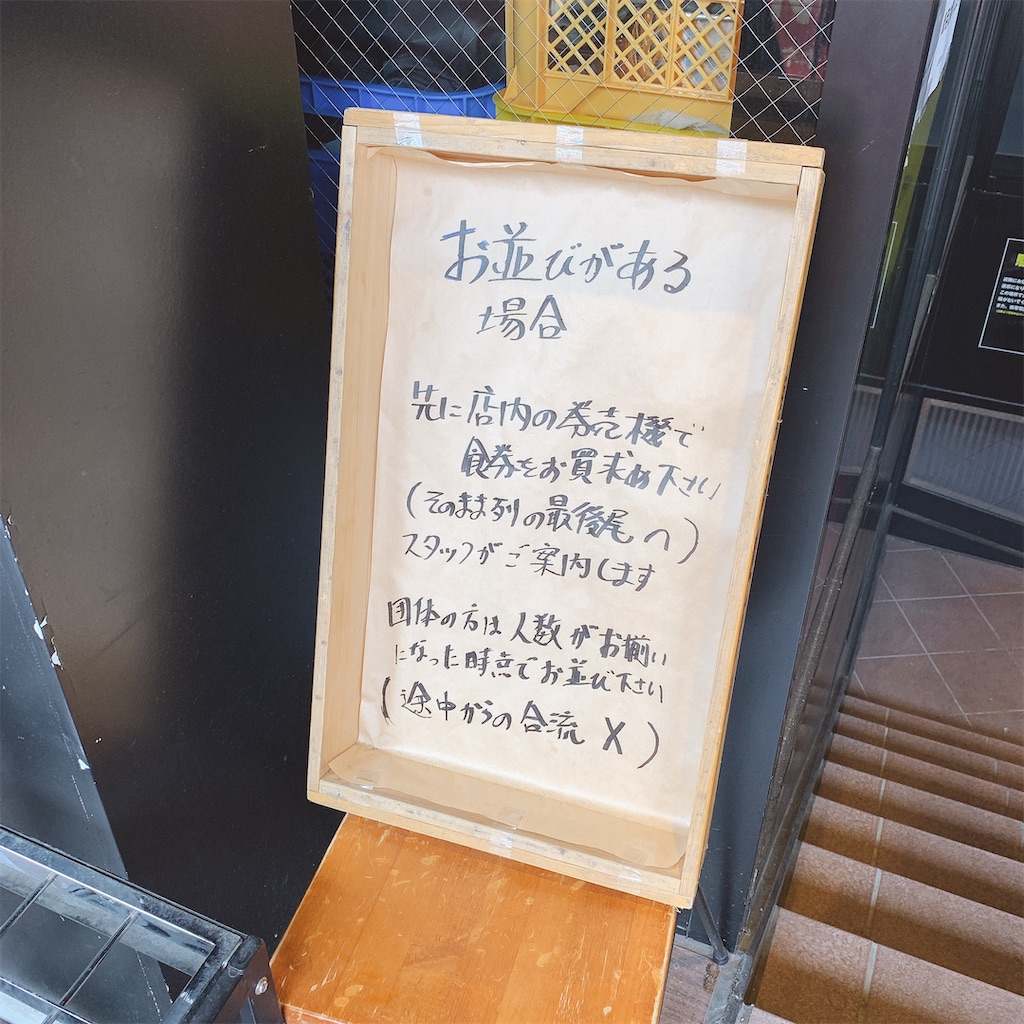 お並びがある
場合
先に店内の券売機で
食券をお買求め下さい
(そのまま列の最後尾へ)
スタッフがご案内します
団体の方は人数がお揃い
になった時点でお並び下さい
(途中からの合流 X)